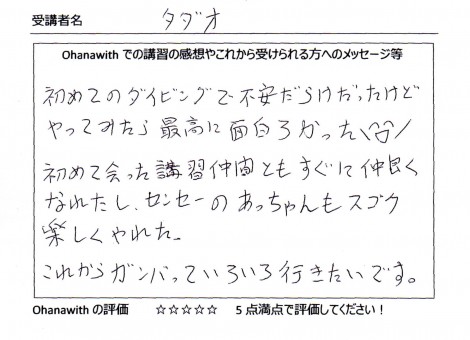 受講者名 タダオ
Ohanawith での講習の感想やこれから受けられる方へのメッセージ等
初めてのダイビングで不安だらけだったけど
やってみたら最高に面白ろかった\(^o^)/
初めて会った講習仲間ともすぐに仲良く
なれたし、センセーのあっちゃんもスゴク
楽しくやれた。
これからガンバっていろいろ行きたいです。
Ohanawith の評価 ☆☆☆☆☆ 5点満点で評価してください！